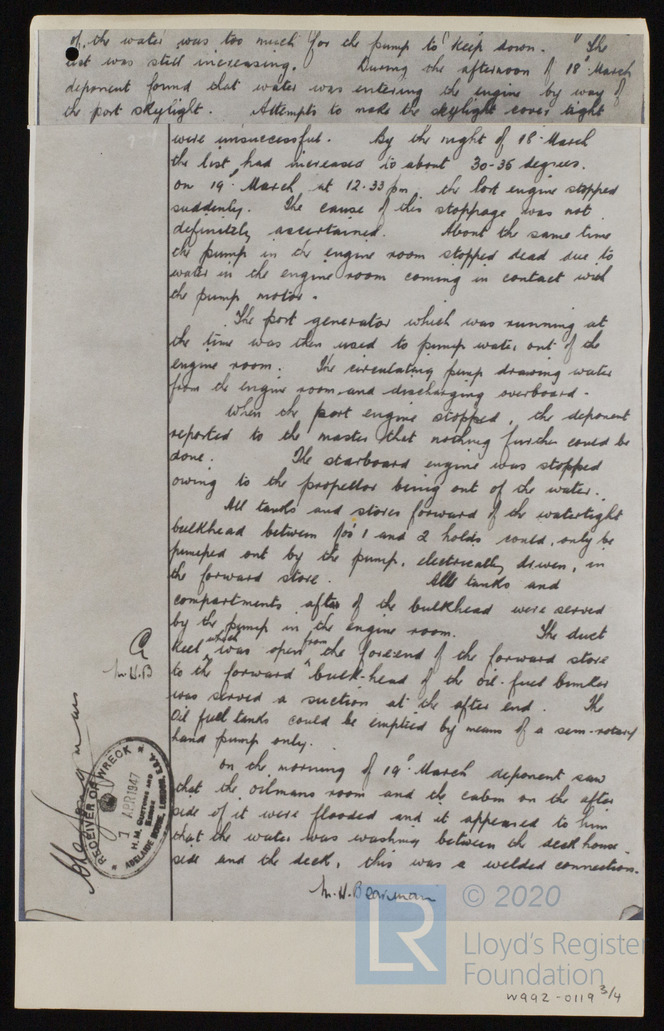 of the water was too much for the pump to keep down. The
list was still increasing. During the afternoon of 18th March
deponent found that water was entering the engine by way of
the port skylight. Attempts to make the skylight cover tight
were unsuccessful. By the night of 18th March
the list had increased to about 30-35 degrees.
On 19th March at 12.33 pm the port engine stopped
suddenly. The cause of this stoppage was not
definitely ascertained. About the same time
the pump in the engine room stopped dead due to
water in the engine room coming in contact with
the pump motor.
The port generator which was running at
the time was then used to pump water out of the
engine room. The circulating pump drawing water
from the engine room and discharging overboard.
When the port engine stopped, the deponent
reported to the master that nothing further could be
done. The starboard engine was stopped
owing to the propellor being out of the water.
All tanks and stores forward of the watertight
bulkhead between Nos 1 and 2 holds could, only be
pumped out by the pump, electrically driven, in
the forward store. All tanks and
compartments after of the bulkhead were served
by the pump in the engine room. The duct
keel which was open from the fore end of the forward store
to the forward bulk-head of the oil-fuel bunker
was served a suction at the after end. The
Oil fuel tanks could be emptied by means of a semi-rotary
hand pump only.
On the morning of 19th March deponent saw
that the oilmans room and the cabin on the after
side of it were flooded and it appeared to him
that the water was washing between the deck house
side and the deck, this was a welded connection.
M.H.B
RECEIVER OF WRECK
1 APR 1947
H.M. CUSTOMS AND EXCISE
ADELAIDE HOUSE, LONDON E.C.4.
M.H. Bearman
LR
© 2020
Lloyd's Register
Foundation
W992-0119 3/4